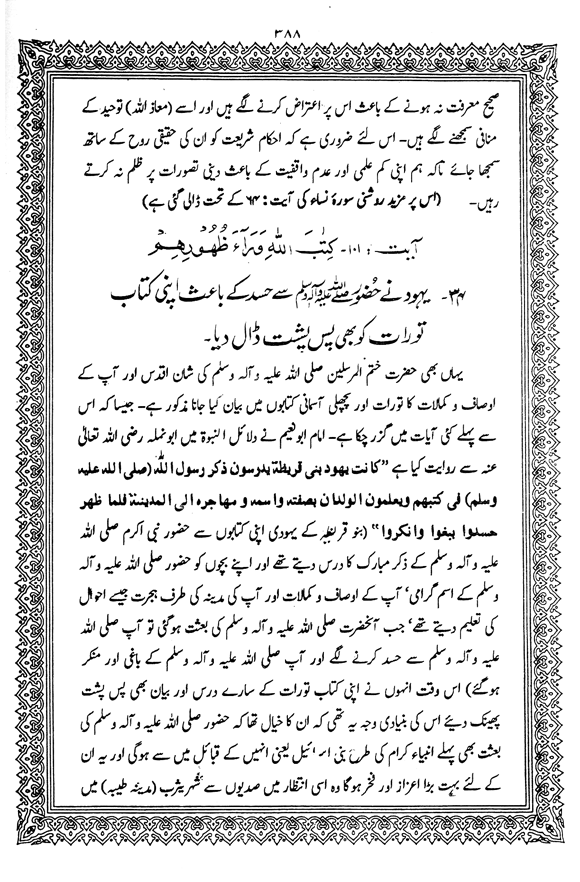 ۳۸۸
صحیح معرفت نہ ہونے کے باعث اس پر اعتراض کرنے لگے ہیں اور اسے (معاذ اللہ) توحید کے
منافی سمجھنے لگے ہیں۔ اس لئے ضروری ہے کہ احکام شریعت کو ان کی حقیقی روح کے ساتھ
سمجھا جائے تاکہ ہم اپنی کم علمی اور عدم واقفیت کے باعث دینی تصورات پر ظلم نہ کرتے
رہیں۔ (اس پر مزید روشنی سورۂ نساء کی آیت : ۶۴ کے تحت ڈالی گئی ہے)
آیت : ۱۰۱۔ كِتٰبَ اللّٰهِ وَرَآءَ ظُهُوْرِهِمْ
۳۴۔ یہود نے حضور صلی اللہ علیہ وآلہ وسلم سے حسد کے باعث اپنی کتاب
تورات کو بھی پس پشت ڈال دیا۔
یہاں بھی حضرت ختم المرسلین صلی اللہ علیہ و آلہ وسلم کی شان اقدس اور آپ کے
اوصاف و کمالات کا تورات اور پچھلی آسمانی کتابوں میں بیان کیا جانا مذکور ہے۔ جیسا کہ اس
سے پہلے کئی آیات میں گزر چکا ہے۔ امام ابو نعیم نے دلائل النبوۃ میں ابو نملہ رضی اللہ تعالیٰ
عنہ سے روایت کیا ہے "کانت یهود بنی قریظة یدرسون ذکر رسول اللّٰه (صلی اللہ علیہ
وسلم) فی کتبهم ویعلمون الولدان بصفته واسمه و مهاجره الی المدینة فلما ظهر
حسدوا وبغوا وانکروا" (بنو قریظہ کے یہودی اپنی کتابوں سے حضور نبی اکرم صلی اللہ
علیہ و آلہ وسلم کے ذکر مبارک کا درس دیتے تھے اور اپنے بچوں کو حضور صلی اللہ علیہ و آلہ
وسلم کے اسم گرامی' آپ کے اوصاف و کمالات اور آپ کی مدینہ کی طرف ہجرت جیسے احوال
کی تعلیم دیتے تھے' جب آنحضرت صلی اللہ علیہ و آلہ وسلم کی بعثت ہوگئی تو آپ صلی اللہ
علیہ و آلہ وسلم سے حسد کرنے لگے اور آپ صلی اللہ علیہ و آلہ وسلم کے باغی اور منکر
ہوگئے) اس وقت انہوں نے اپنی کتاب تورات کے سارے درس اور بیان بھی پس پشت
پھینک دیئے اس کی بنیادی وجہ یہ تھی کہ ان کا خیال تھا کہ حضور صلی اللہ علیہ و آلہ وسلم کی
بعثت بھی پہلے انبیاء کرام کی طرح بنی اسرائیل یعنی انہیں کے قبائل میں سے ہوگی اور یہ ان
کے لئے بہت بڑا اعزاز اور فخر ہوگا وہ اسی انتظار میں صدیوں سے شہر یثرب (مدینہ طیبہ) میں